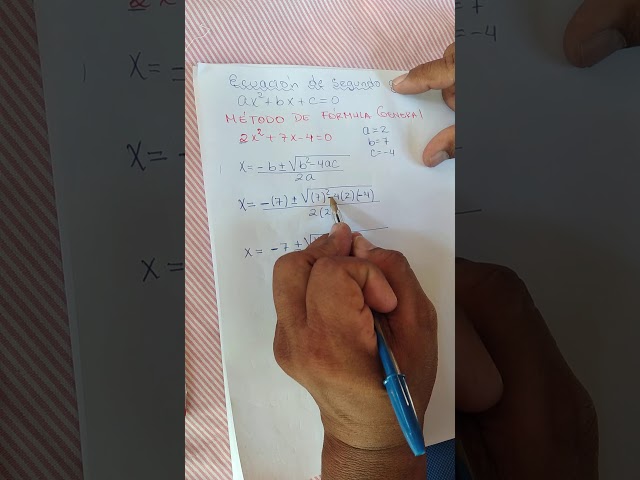 Ecuación de segundo
ax² + bx + c = 0
MÉTODO DE FÓRMULA GENERAL
2x² + 7x - 4 = 0
a = 2
b = 7
c = -4
x = -b ± √b² - 4ac
2a
x = -(7) ± √(7)² - 4(2)(-4)
2(2
x = -7 ± √